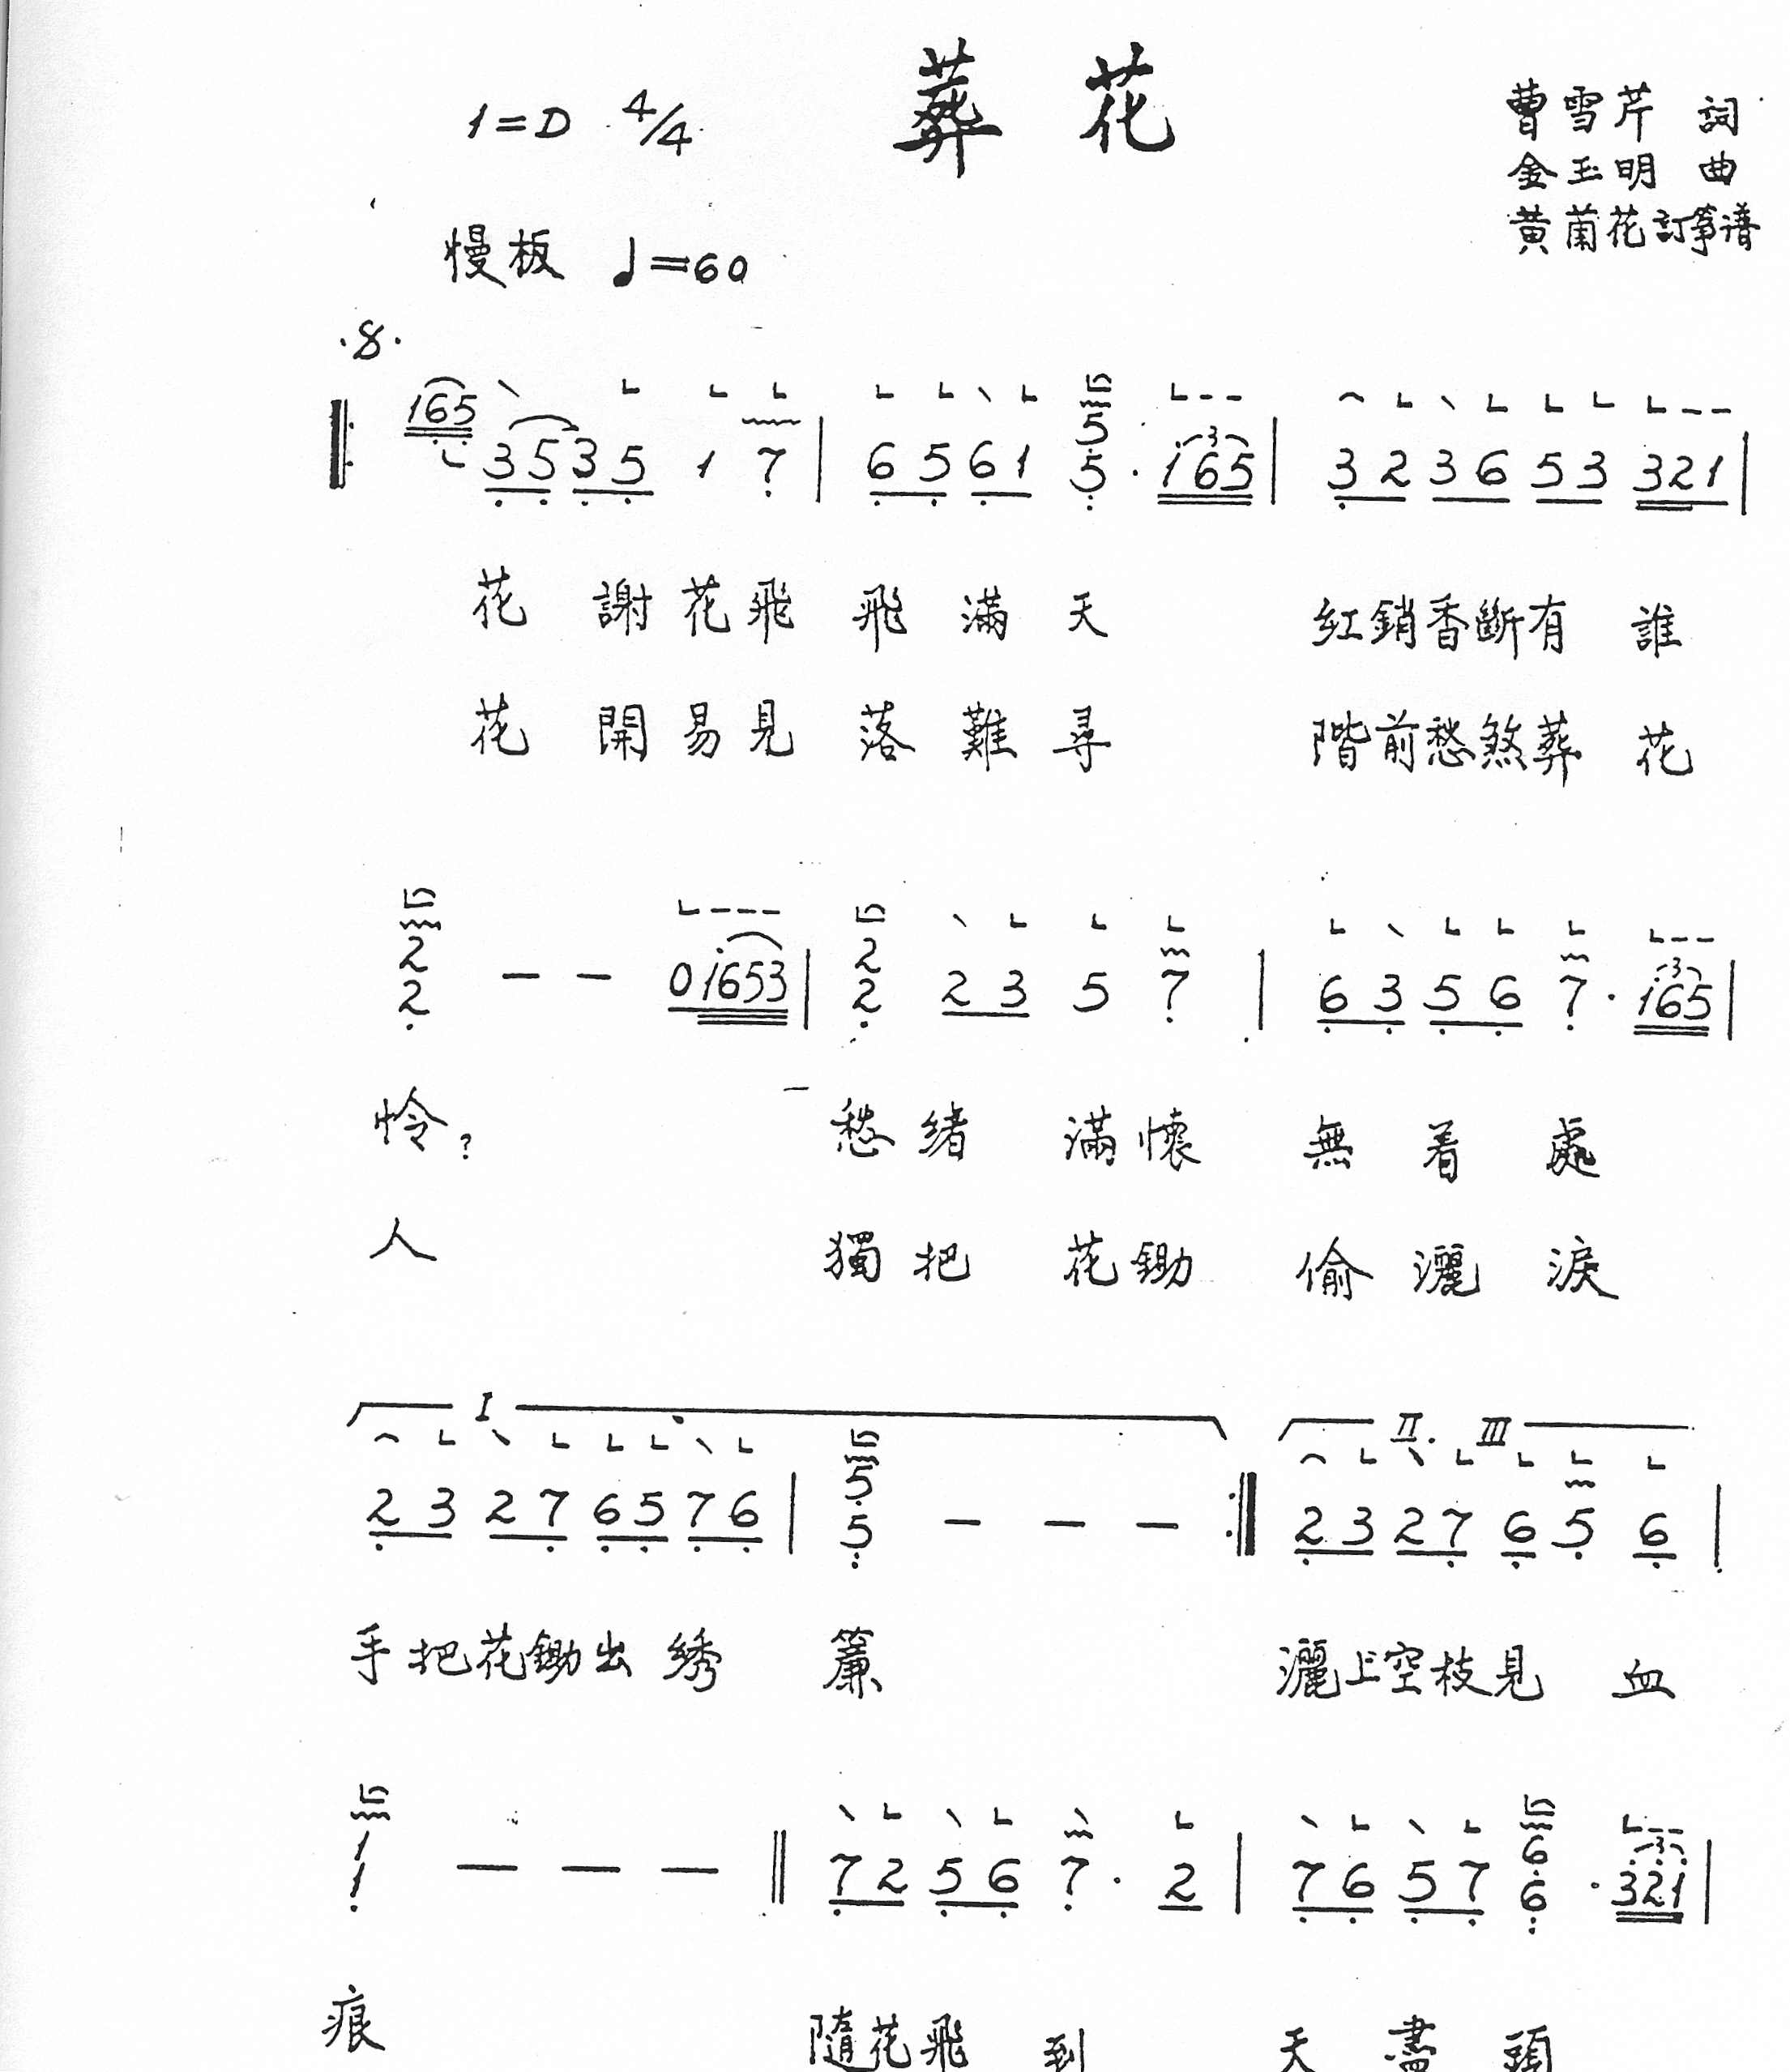 葬花
1=D 4/4
曹雪芹 詞
金玉明 曲
黄蘭花訂箏谱
慢板 ♩=60
165 3535 1 7 | 6561 5 5 · 165 | 32 36 53 321 |
花 謝 花 飛 飛 滿 天 红銷香斷有 誰
花 開 易 見 落 難 尋 階前愁煞葬 花
2 2 – – 01653 | 2 2 23 5 7 | 63 56 7 · 165 |
怜? 愁緒 滿懷 無着處
人 獨把 花鋤 偷灑淚
I II. III
23 27 65 76 | 5 5 – – – :‖ 23 27 6 5 6 |
手把花鋤出 绣 簾 灑上空枝見 血
1 1 – – – ‖ 72 56 7 · 2 | 76 57 6 6 · 321 |
痕 隨花飛 到 天 盡 頭